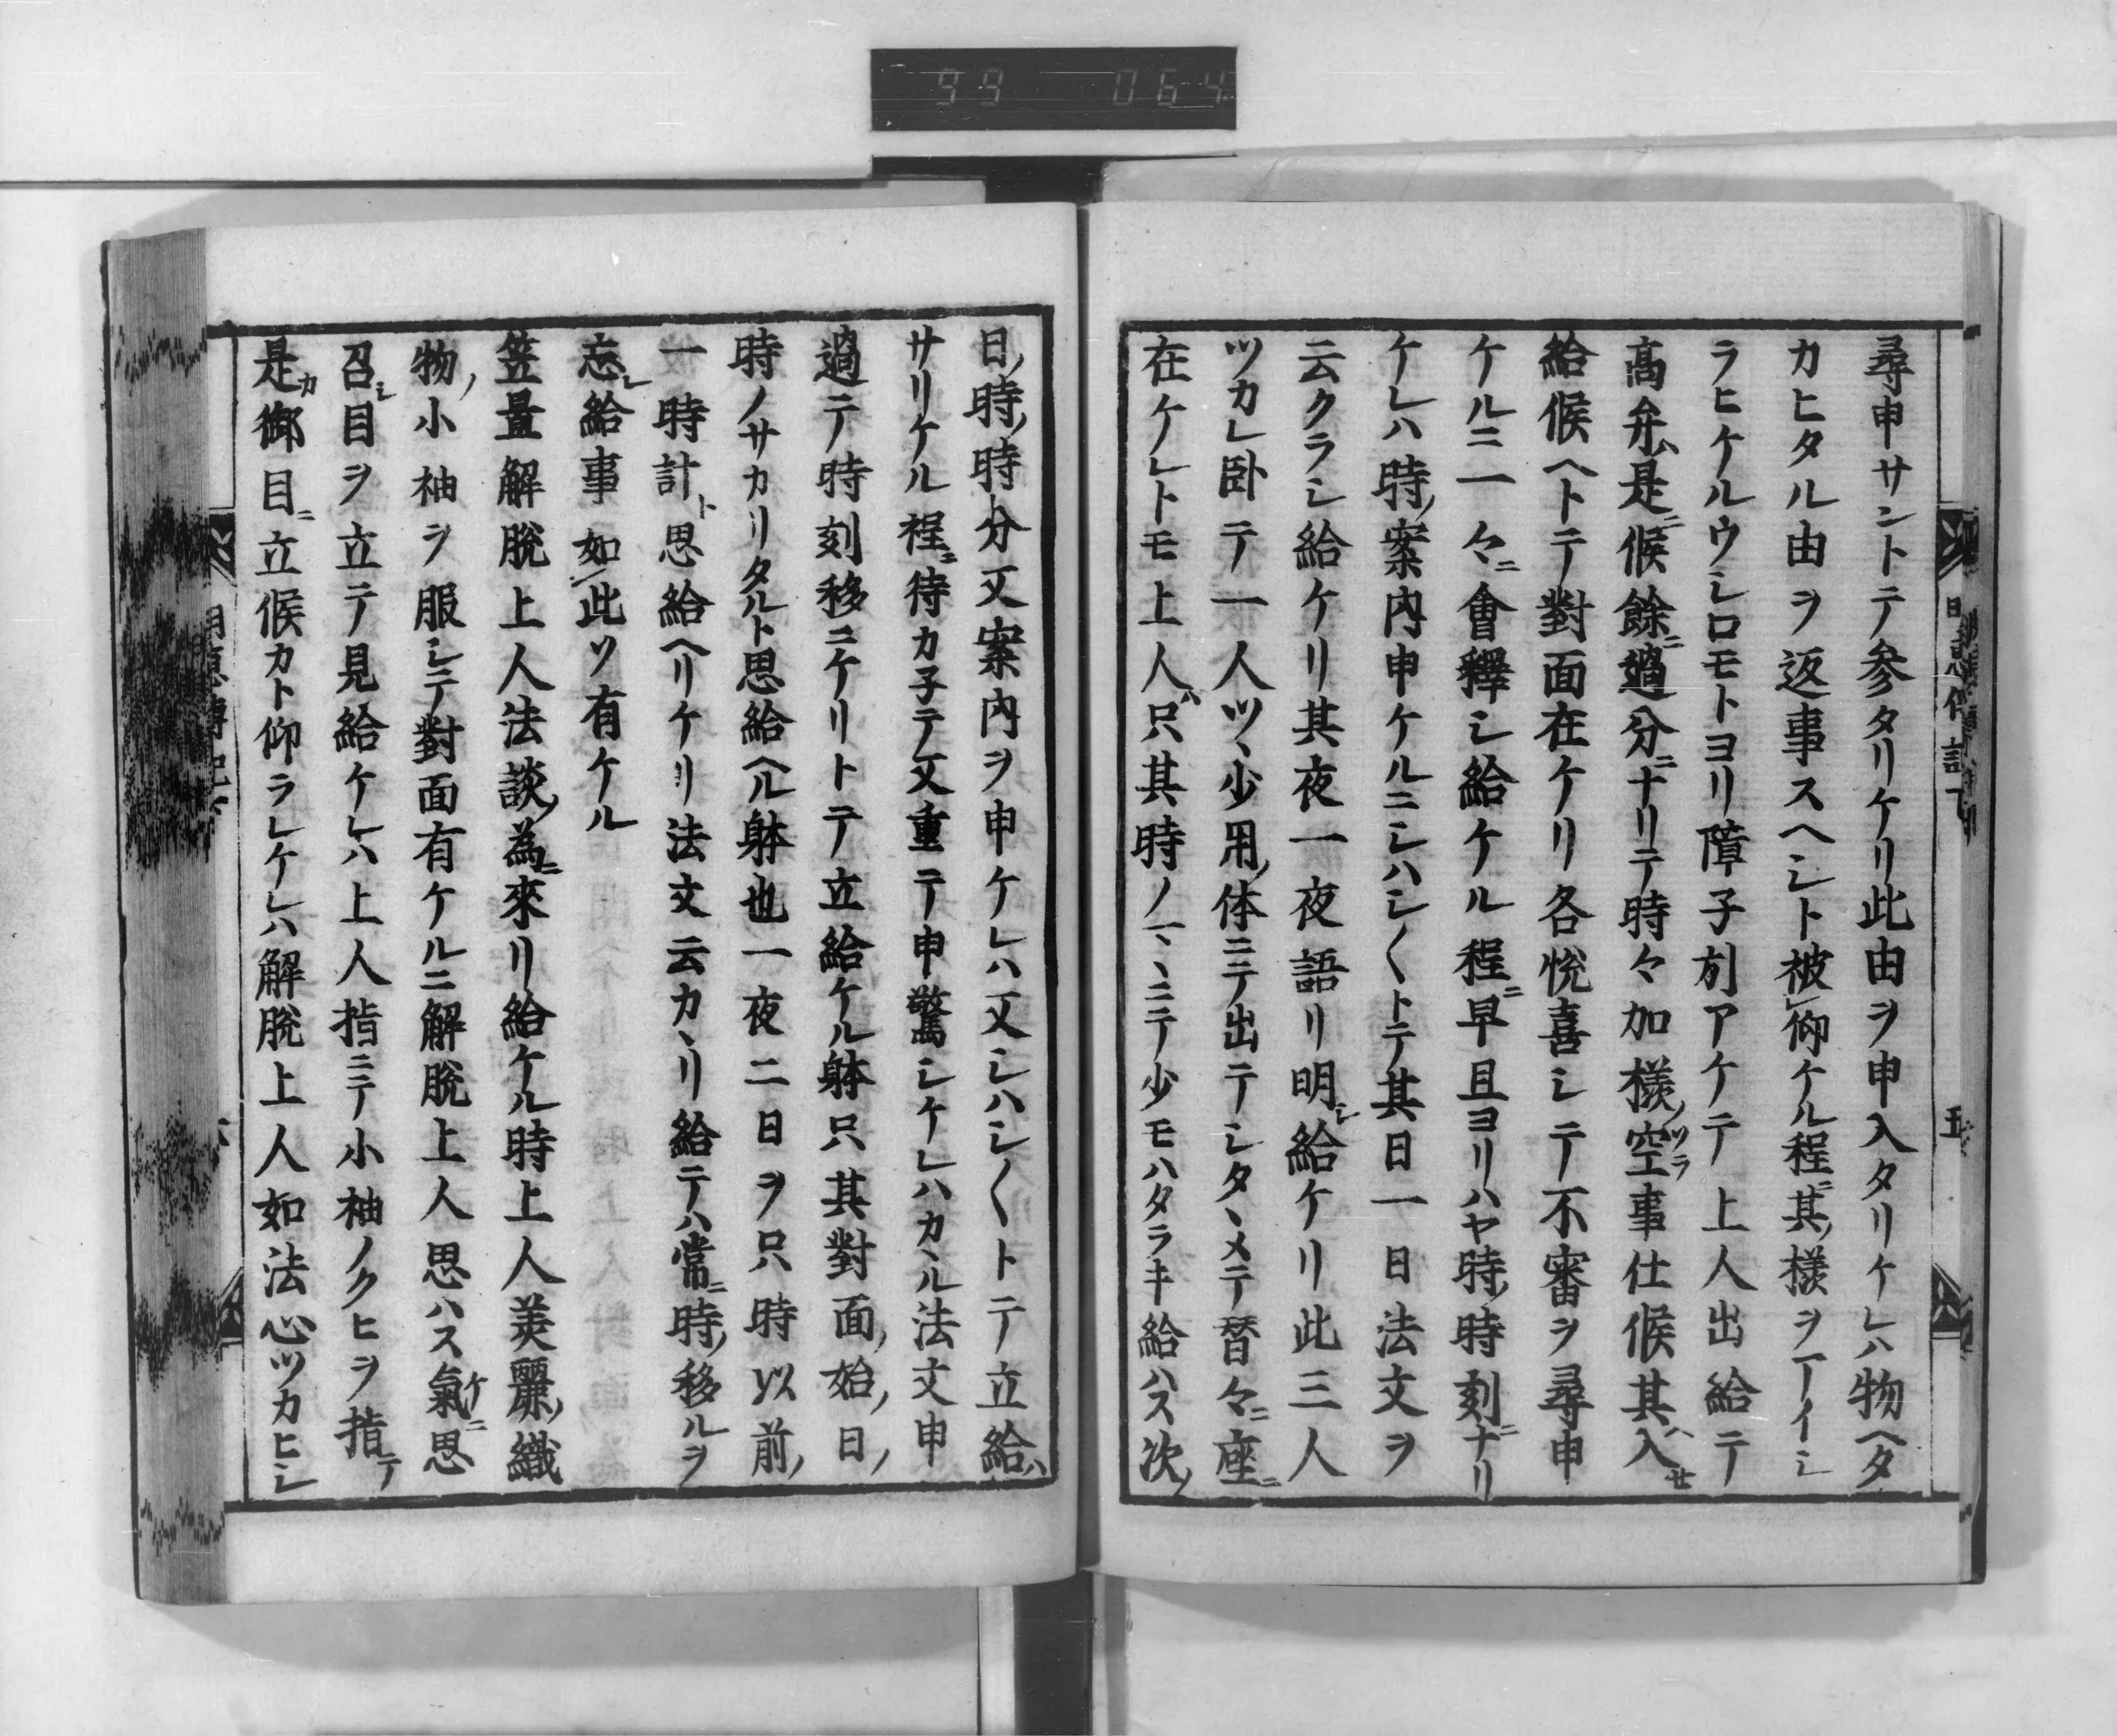 99 064
尋申サントテ参タリケリ此由ヲ申入タリケレハ物ヘタ
カヒタル由ヲ返事スヘシト被レ仰ケル程ニ其ノ様ヲ
ラヒケルウシロモトヨリ障子別アケテ上人出給テ
髙弁ハ是ニ候餘ニ過分ニナリテ時々加様ノ空ツラ事仕候其ハ入セ
給候ヘトテ對面在ケリ各悦喜シテ不審ヲ尋申
ケルニ一々ニ會釋シ給ケル程ニ早旦ヨリハヤ時ノ時刻ニナリ
ケレハ時ノ案内申ケルニシハシ〱トテ其日一日法文ヲ
云クラシ給ケリ其夜一夜語リ明シ給ケリ此三人
ツカレ卧テ一人ツヽ少用ノ体ニテ出テシタヽメテ替々ニ座ニ
在ケレトモ上人ハ只其時ノマヽニテ少モハタラキ給ハス次ノ
日ノ時ノ時分又案内ヲ申ケレハ又シハシ〱トテ立給ハ
サリケル程ニ待カ子テ又重テ申驚シケレハカヽル法文申
過テ時刻移ニケリトテ立給ケル躰只其對面ノ始ノ日ノ
時ノサカリタルト思給ヘル躰也一夜二日ヲ只時以前ノ
一時計ト思給ヘリケリ法文云カヽリ給テハ常ニ時ノ移ルヲ
忘レ給事如レ此ソ有ケル
笠置解脱上人法談ノ為ニ來リ給ケル時上人美麗ノ織
物ノ小袖ヲ服シテ對面有ケルニ解脱上人思ハス氣ケニ思
召シ目ヲ立テ見給ケレハ上人指ニテ小袖ノクヒヲ指テ
是カ御目ニ立候カト仰ラレケレハ解脱上人如法心ツカヒシ
明恵傳記下
五